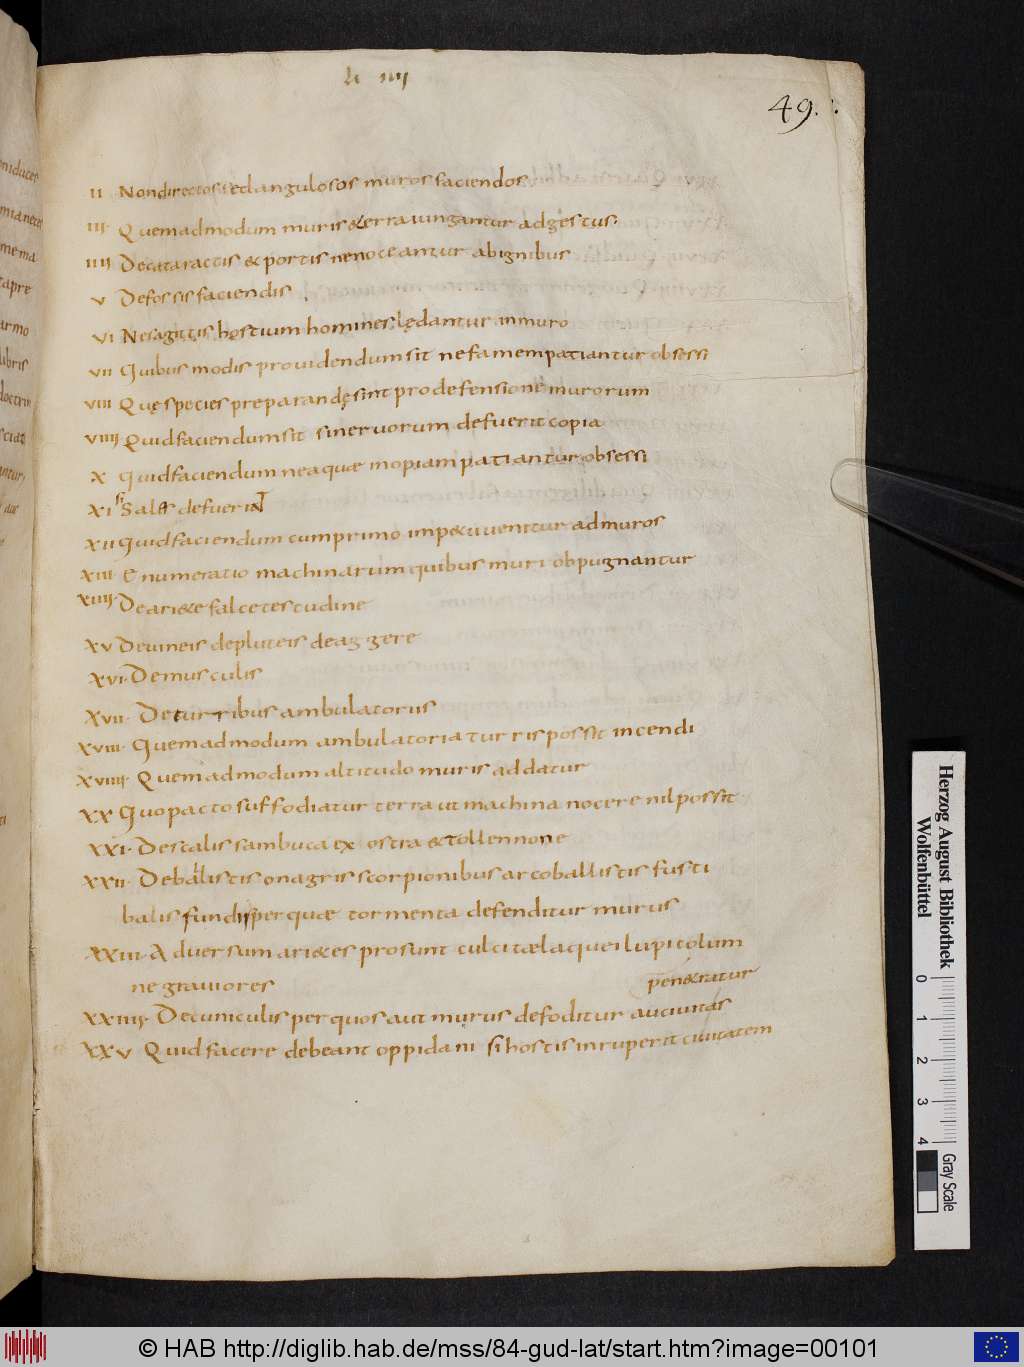 li iiij
49.
II Nondirectos sed angulosos muros faciendos
III. Quemadmodum muris & terra iungantur adgestus.
IIII De cataractis & portis ne noceantur ab ignibus
V De fossis faciendis
VI Ne sagittis hostium homines lędantur in muro
VII Quibus modis prouidendum sit ne famem patiantur obsessi
VIII Quę species preparandę sint pro defensione murorum
VIIII Quid faciendum sit si neruorum defuerit copia
X Quid faciendum ne aquae inopiam patiantur obsessi
XI Si sal defuerit
XII Quid faciendum cum primo impetu uenitur ad muros
XIII Enumeratio machinarum quibus muri obpugnantur
XIIII. De ari&e falce testudine
XV De uineis de pluteis de aggere
XVI. De musculis
XVII. De turribus ambulatorus
XVIII. Quemadmodum ambulatoria turris possit incendi
XVIIII. Quemadmodum altitudo muris addatur
XX Quo pacto suffodiatur terra ut machina nocere nil possit
XXI. De scalis sambuca exostra & tollennone
XXII. De balistis onagris scorpionibus arcoballistis fusti
balis fundis per quae tormenta defenditur murus
XXIII. Aduersum ari&es prosunt culcitae laquei lupi colum
ne grauiores
pen&ratur
XXIIII. De cuniculis per quos aut murus defoditur aut ciuitas
XXV Quid facere debeant oppidani si hostis inruperit ciuitatem
Herzog August Bibliothek
Wolfenbüttel
0 1 2 3 4
Gray Scale
© HAB http://diglib.hab.de/mss/84-gud-lat/start.htm?image=00101